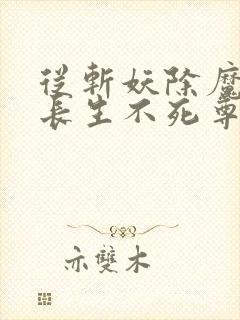 從斬妖除魔
長生不死尊
亦雙木